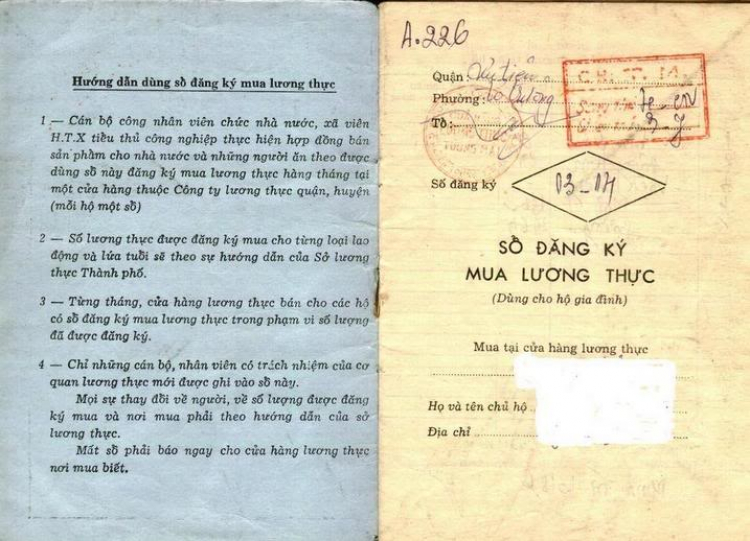 Hướng dẫn dùng sổ đăng ký mua lương thực
1 — Cán bộ công nhân viên chức nhà nước, xã viên
H.T.X tiểu thủ công nghiệp thực hiện hợp đồng bán
sản phẩm cho nhà nước và những người ăn theo được
dùng sổ này đăng ký mua lương thực hàng tháng tại
một cửa hàng thuộc Công ty lương thực quận, huyện
(mỗi hộ một sổ)
2 — Số lương thực được đăng ký mua cho từng loại lao
động và lứa tuổi sẽ theo sự hướng dẫn của Sở lương
thực Thành phố.
3 — Từng tháng, cửa hàng lương thực bán cho các hộ
có sổ đăng ký mua lương thực trong phạm vi số lượng
đã được đăng ký.
4 — Chỉ những cán bộ, nhân viên có trách nhiệm của cơ
quan lương thực mới được ghi vào sổ này.
Mọi sự thay đổi về người, về số lượng được đăng
ký mua và nơi mua phải theo hướng dẫn của sở
lương thực.
Mất sổ phải báo ngay cho cửa hàng lương thực
nơi mua biết.
A.226
Quận:
Phường:
Tổ:
Số đăng ký
03-14
SỔ ĐĂNG KÝ
MUA LƯƠNG THỰC
(Dùng cho hộ gia đình)
Mua tại cửa hàng lương thực
Họ và tên chủ hộ
Địa chỉ